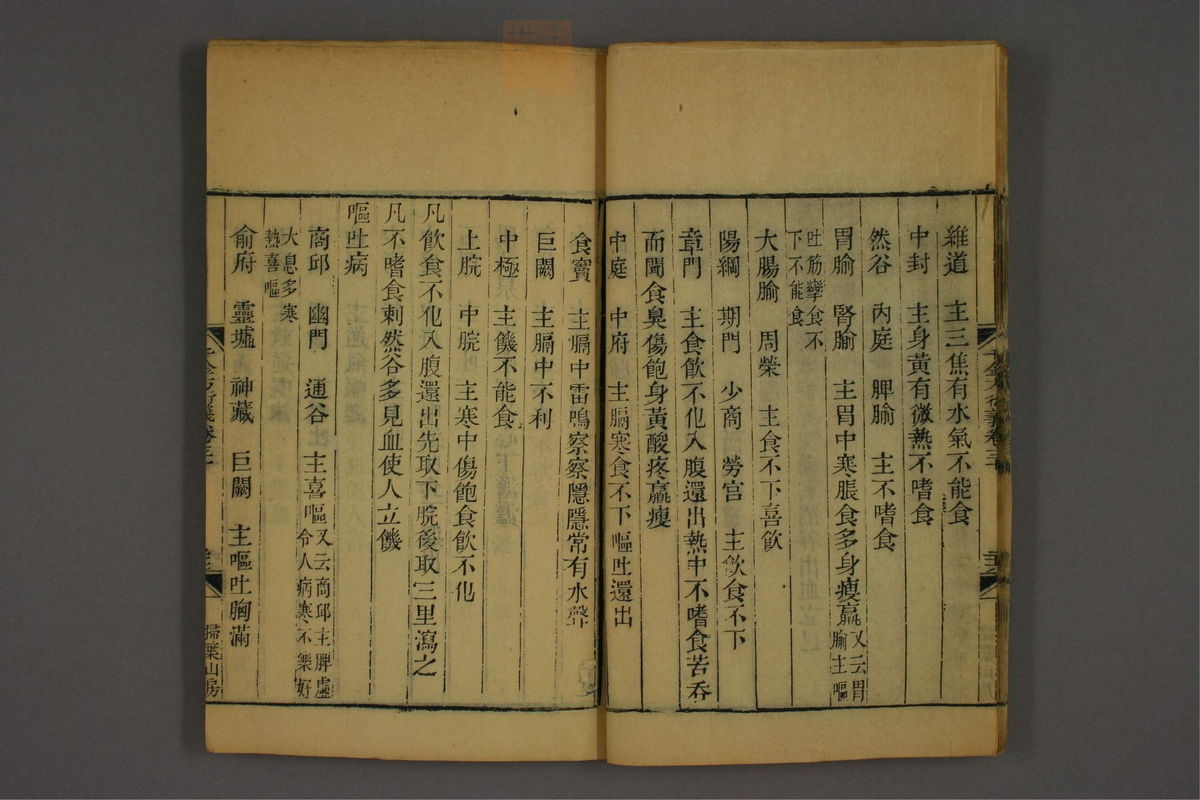 維道　主三焦有水氣不能食
中封　主身黃有微熱不嗜食
然谷　內庭　脾腧　主不嗜食
胃腧　腎腧　主胃中寒脹食多身瘦羸又云胃腧主嘔
吐筋攣食不下不能食
大腸腧　周榮　主食不下喜飲
陽綱　期門　少商　勞宮　主飲食不下
章門　主食飲不化入腹還出熱中不嗜食苦吞
而聞食臭傷飽身黃酸疼羸瘦
中庭　中府　主膈寒食不下嘔吐還出
食竇　主膈中雷鳴察察隱隱常有水聲
巨闕　主膈中不利
中極　主饑不能食
上脘　中脘　主寒中傷飽食飲不化
凡飲食不化入腹還出先取下脘後取三里瀉之
凡不嗜食刺然谷多見血使人立饑
嘔吐病
商邱　幽門　通谷　主喜嘔又云商邱主脾虛令人病寒不樂好
大息多寒熱喜嘔
俞府　靈墟　神藏　巨闕　主嘔吐胸滿
千金方衍義卷三十
掃葉山房